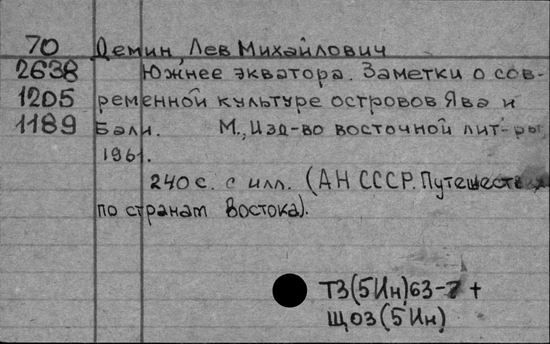 70 Демин, Лев Михайлович
2638 Южнее экватора. Заметки о сов-
1205 ременной культуре островов Ява и
1189 Бали. М., Изд-во восточной лит-ры,
1961.
240 с. с илл. (АН СССР. Путешествия
по странам Востока).
Т3(5Ин)63-7 +
Щ03(5Ин)